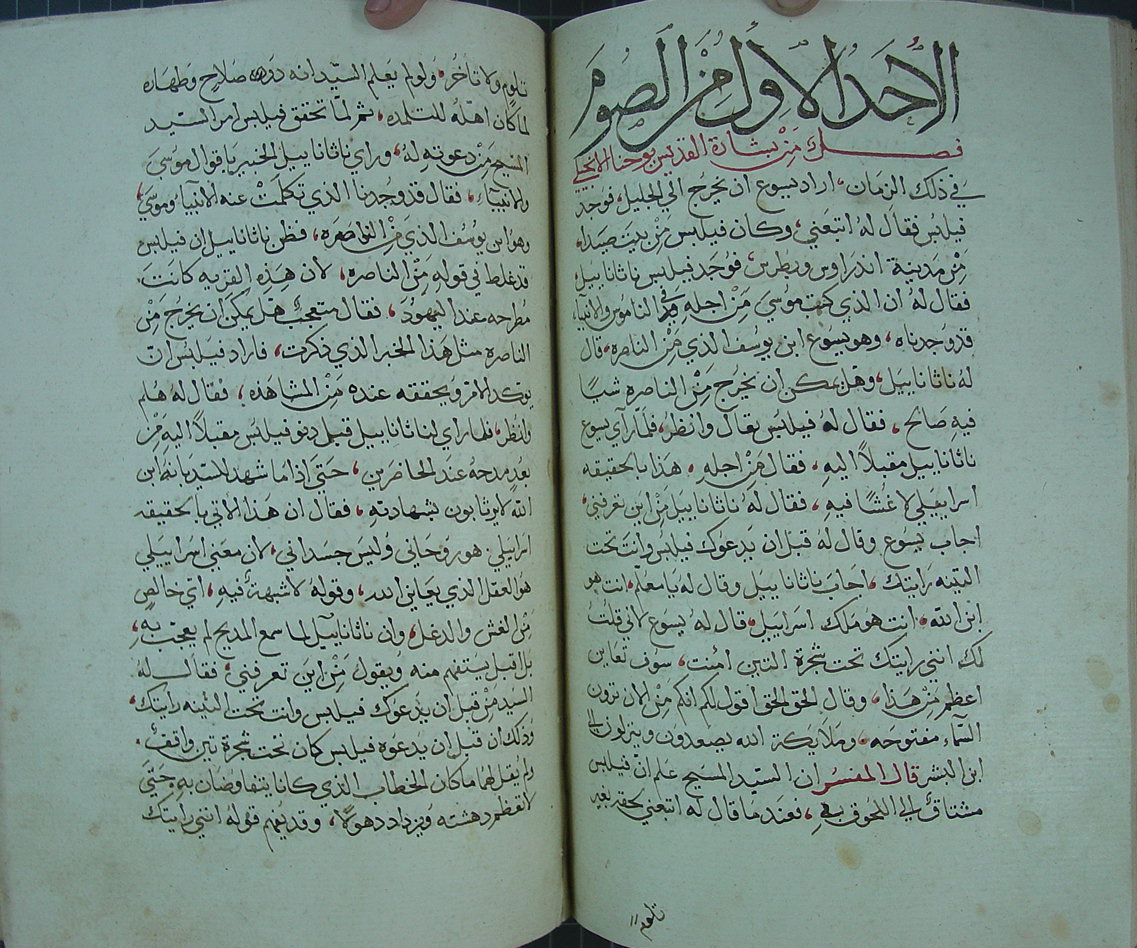 الاحد الاول من الصوم
فصل من بشارة القديس يوحنا الانجيلي
في ذلك الزمان، اراد يسوع ان يخرج الي الجليل، فوجد
فيلبس فقال له اتبعني، وكان فيلبس من بيت صيدا،
من مدينة اندراوس وبطرس، فوجد فيلبس ناثانابيل
فقال له ان الذي كتب موسي من اجله في الناموس والانبيا،
قد وجدناه، وهو يسوع ابن يوسف الذي من الناصره، قال
له ناثانابيل، وهل يمكن ان يخرج من الناصره شيا
فيه صالح، فقال له فيلبس تعال وانظر، فلما راي يسوع
ناثانابيل مقبلاً اليه، فقال من اجله، هذا بالحقيقه
اسراييلي لا غشا فيه، فقال له ناثانابيل من اين تعرفني،
اجاب يسوع وقال له قبل ان يدعوك فيلبس وانت تحت
التينه رايتك، اجاب ناثانابيل وقال له يا معلم، انت هو
ابن الله، انت هو ملك اسراييل، قال له يسوع لاني قلت
لك انني رايتك تحت شجرة التين امنت، سوف تعاين
اعظم من هذا، وقال الحق الحق اقول لكم انكم من الان ترون
السماء مفتوحه، وملايكة الله يصعدون وينزلون الي
ابن البشر قال المفسر ان السيد المسيح علم ان فيلبس
مشتاق الي اللحوق به، فعند ما قال له اتبعني لحقه بغير
تلوم
تلوم ولا تاخر، ولو لم يعلم السيد انه ذو صلاح وطهاره
لما كان اهله للتلمده، ثم لما تحقق فيلبس امر السيد
المسيح من دعوته له، وراي ناثانابيل الخبير باقوال موسي
والانبياء، فقال قد وجدنا الذي تكلمت عنه الانبيا وموسي،
وهو ابن يوسف الذي من الناصره، فظن ناثانابيل ان فيلبس
قد غلط في قوله من الناصره، لان هذه القريه كانت
مطرحه عند اليهود، فقال متعجب هل يمكن ان يخرج من
الناصره مثل هذا الخبر الذي ذكرت، فاراد فيلبس ان
يوكد الامر ويحققه عنده من المشاهده، فقال له هلم
وانظر، فلما راي لنا ثانابيل قبل دنو فيلبس مقبلاً اليه من
بعد مدحه عند الحاضرين، حتي اذا ما شهد للسيد بانه ابن
الله لا يرتابون بشهادته، فقال ان هذا الاتي بالحقيقه
اسراييلي هو روحاني وليس جسداني، لان معني اسراييلي
هو العقل الذي يعاين الله، وقوله لا شبهة فيه، اي خالص
من الغش والدغل، وان ناثانابيل لما سمع المديح لم يعجب به،
بل اقبل يستفهم منه ويقول من اين تعرفني، فقال له
السيد من قبل ان يدعوك فيلبس وانت تحت التينه رايتك،
وذلك ان قبل ان يدعوه فيلبس كان تحت شجرة تين واقف،
ولم يقل لهما ما كان الخطاب الذي كانا يتفاوضان به، حتي
لا تعظم دهشته ويزداد دهولاً، وقد يفهم قوله انني رايتك